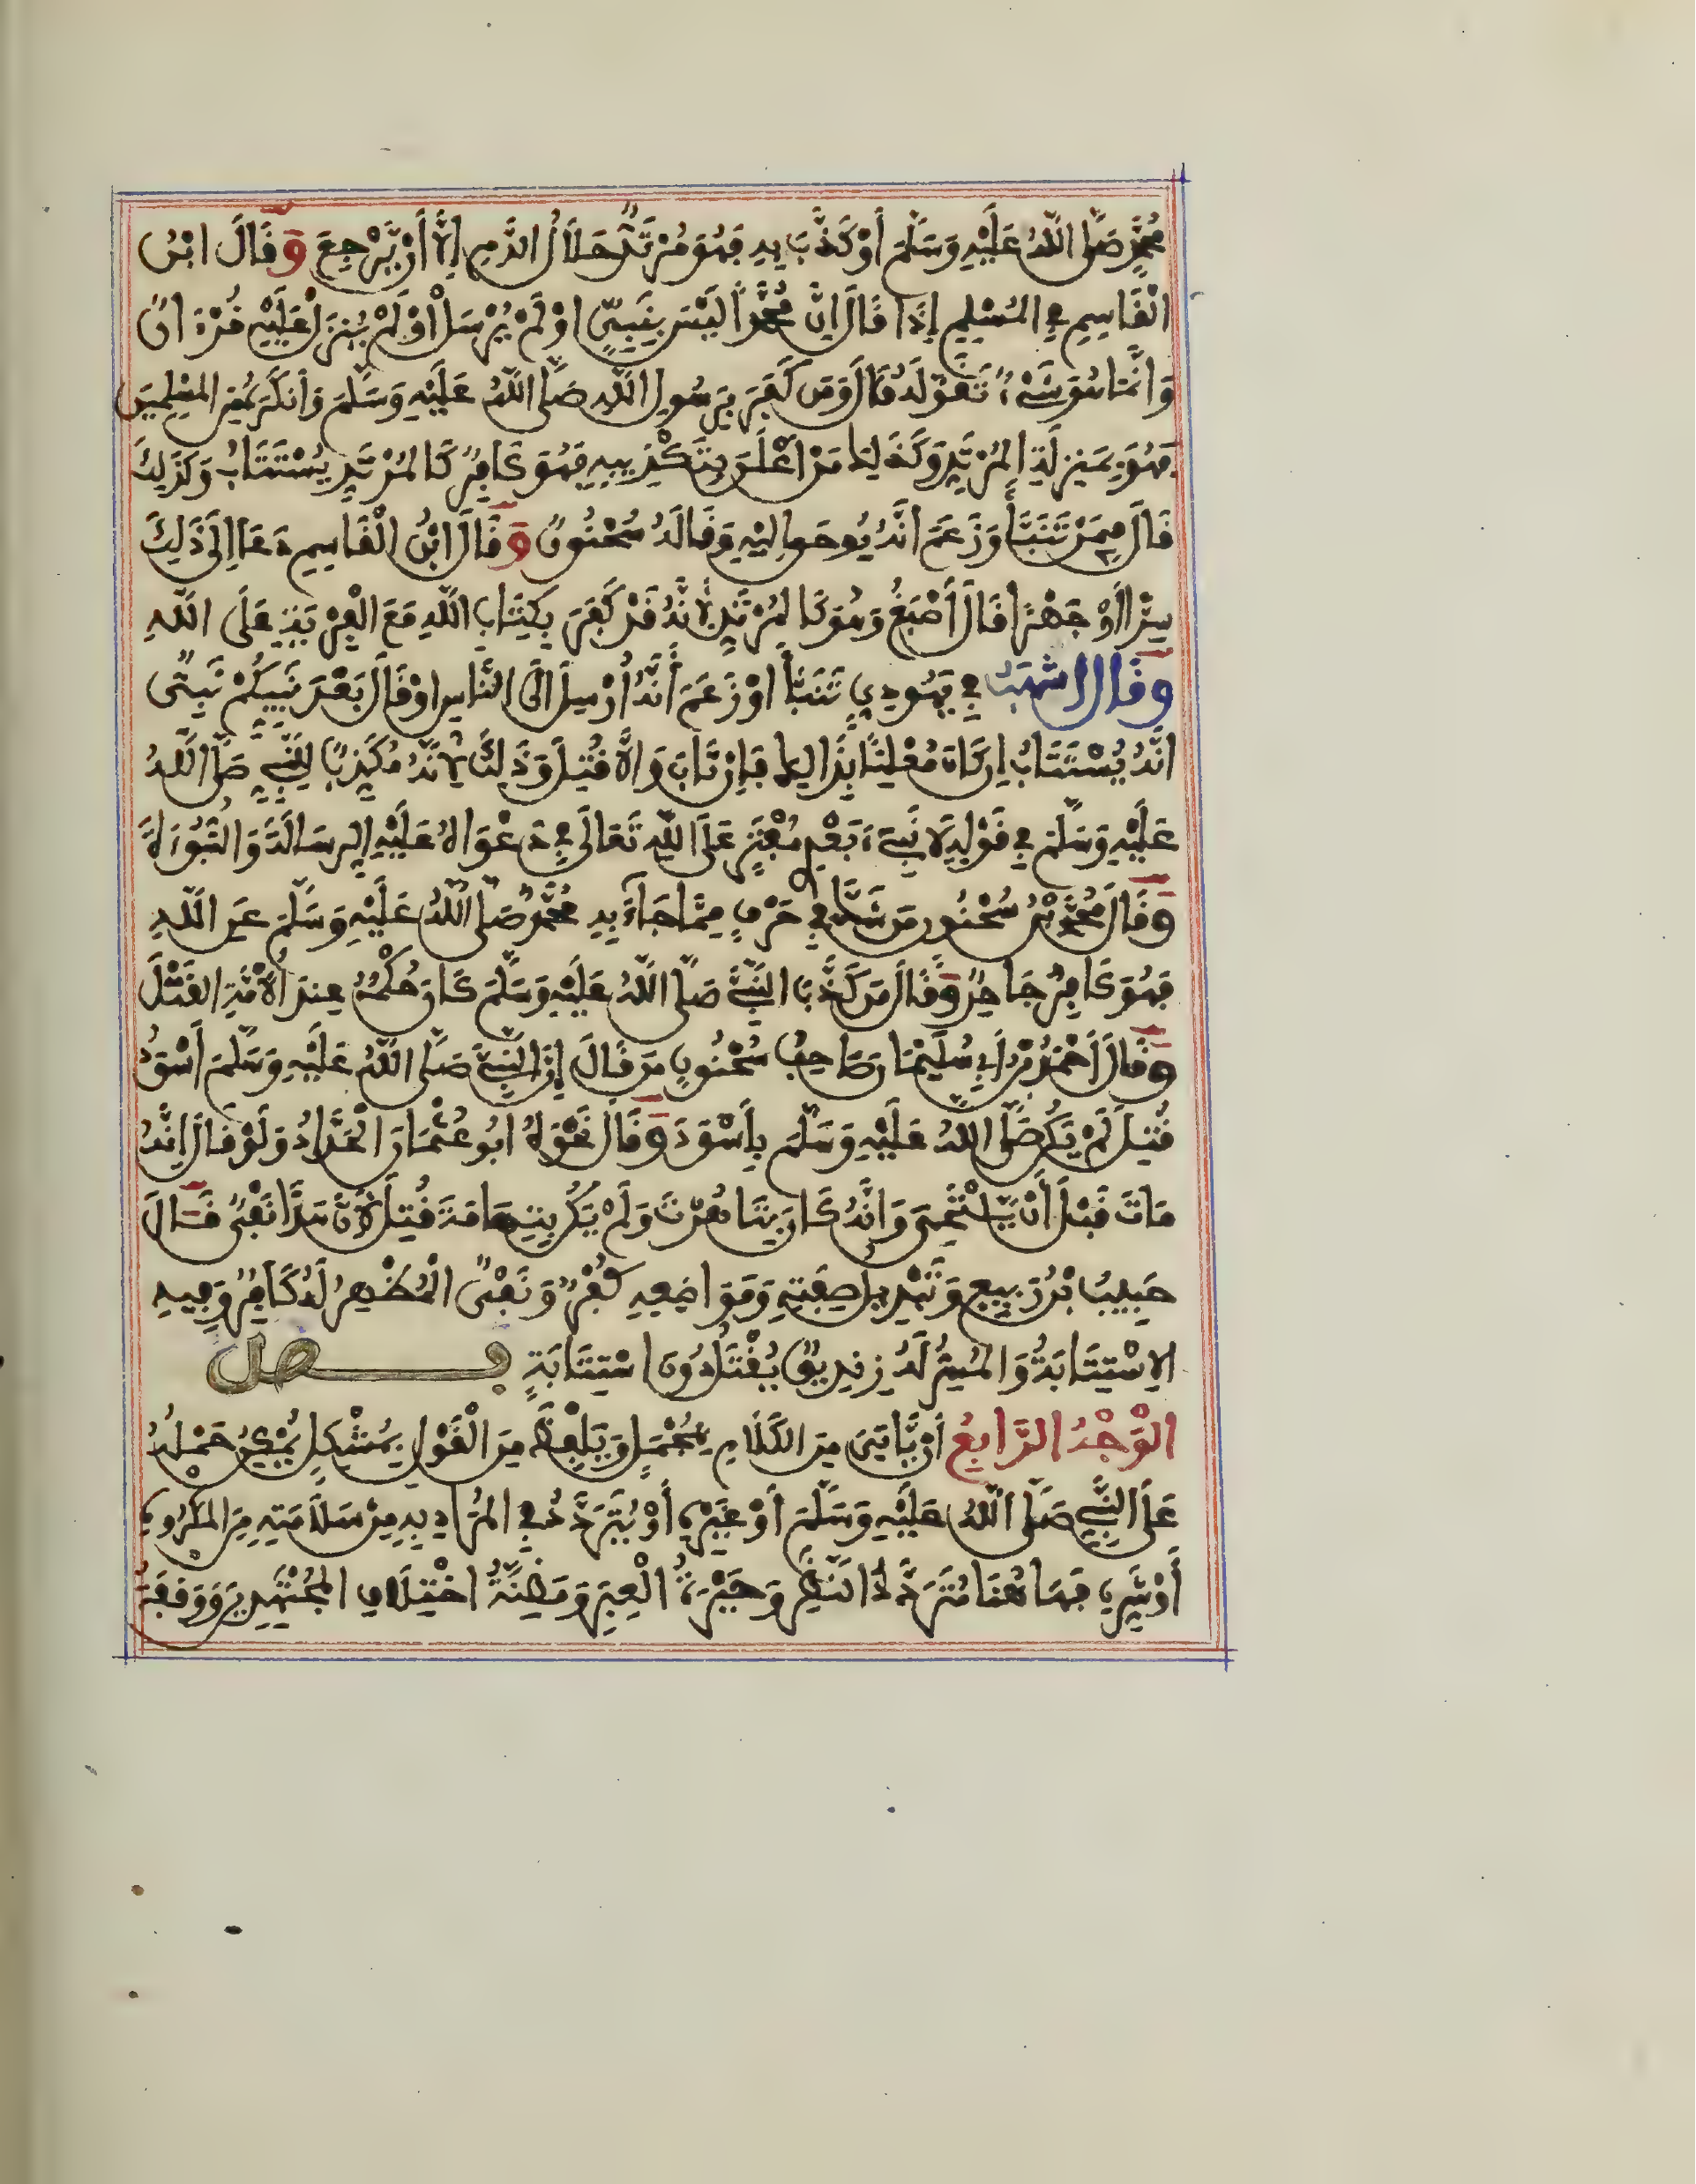 مُحَمَّدٍ صَلَّى اللَّهُ عَلَيْهِ وَسَلَّمَ أَوْ كَذَّبَ بِهِ فَهُوَ مُرْتَدٌّ حَلَالُ الدَّمِ إِلَّا أَنْ يَّرْجِعَ وَقَالَ ابْنُ
الْقَاسِمِ فِي الْمُسْلِمِ إِذَا قَالَ إِنَّ مُحَمَّدًا لَيْسَ بِنَبِيٍّ اوْ لَمْ يُرْسَلْ أَوْ لَمْ يُنْزَلْ عَلَيْهِ قُرْءَانٌ
وَإنَّمَا هُوَ شَيْءٌ تَقَوَّلَهُ قَالَ وَمَن كَفَرَ بِرَسُولِ اللَّهِ صَلَّى اللَّهُ عَلَيْهِ وَسَلَّمَ وَأَنكَرَهُ مِنَ الْمُسْلِمِينَ
فَهُوَ بِمَنْزِلَةِ الْمُرْتَدِّ وَكَذَلِكَ مَنْ أَعْلَنَ بِتَكْذِيبِهِ فَهُوَ كَافِرٌ كَالْمُرْتَدِّ يُسْتَتَابُ وَكَذَلِكَ
قَالَ فِيمَنْ تَنَبَّأَ وَزَعَمَ أَنَّهُ يُوحَى إِلَيْهِ وَقَالَهُ سُحْنُونٌ وَقَالَ ابْنُ الْقَاسِمِ دَعَا إِلَى ذَلِكَ
سِرًّا أَوْ جَهْرًا قَالَ أَصْبَغُ وَهُوَ كَالْمُرْتَدِّ لِأَنَّهُ قَدْ كَفَرَ بِكِتَابِ اللَّهِ مَعَ الْفِرْيَةِ عَلَى اللَّهِ
وَقَالَ اشْهَبُ فِي يَهُودِيٍّ تَنَبَّأَ اوْ زَعَمَ أَنَّهُ أُرْسِلَ إلَى النَّاسِ اوْ قَالَ بَعْدَ نَبِيِّكُمْ نَبِيٌّ
انَّهُ يُسْتَتَابُ إِن كَانَ مُعْلِنًا بِذَالِكَ فَإِن تَابَ وَإِلَّا قُتِلَ وَذَلِكَ لِأَنَّهُ مُكَذِّبٌ لِلنَّبِيِّ صَلَّى اللَّهُ
عَلَيْهِ وَسَلَّمَ فِي قَوْلِهِ لَا نَبِيَّ بَعْدِي مُفْتَرٍ عَلَى اللَّهِ تَعَالَى فِي دَعْوَاهُ عَلَيْهِ الرِّسَالَةَ وَالنُّبُوءَةَ
وَقَالَ مُحَمَّدُ بْنُ سُحْنُونٍ مَن شَكَّ فِي حَرْفٍ مِمَّا جَاءَ بِهِ مُحَمَّدٌ صَلَّى اللَّهُ عَلَيْهِ وَسَلَّمَ عَنِ اللَّهِ
فَهُوَ كَافِرٌ جَاحِدٌ وَقَالَ مَن كَذَّبَ النَّبِيَّ صَلَّى اللَّهُ عَلَيْهِ وَسَلَّمَ كَانَ حُكْمُهُ عِندَ الْأُمَّةِ الْقَتْلَ
وَقَالَ أَحْمَدُ بْنُ أَبِي سُلَيْمَانَ صَاحِبُ سُحْنُونٍ مَن قَالَ إِنَّ النَّبِيَّ صَلَّى اللَّهُ عَلَيْهِ وَسَلَّمَ أَسْوَدُ
قُتِلَ لَمْ يَكُنْ صَلَّى اللَّهُ عَلَيْهِ وَسَلَّمَ بِأَسْوَدَ وَقَالَ نَحْوَهُ ابُو عُثْمَانَ الْحَدَّادُ وَلَوْ قَالَ إِنَّهُ
مَاتَ قَبْلَ أَنْ يَّلْتَحِيَ وَأَنَّهُ كَانَ بِتَاهَرْتَ وَلَمْ يَكُنْ بِتِهَامَةَ قُتِلَ لِأَنَّ هَذَا نَفْيٌ قَالَ
حَبِيبُ بْنُ رَبِيعٍ وَتَبْدِيلُ صِفَتِهِ وَمَوَاضِعِهِ كُفْرٌ وَنَفْيٌ الْمُظْهِرُ لَهُ كَافِرٌ وَفِيهِ
الِاسْتِتَابَةُ وَالْمُسِرُّ لَهُ زِنْدِيقٌ يُقْتَلُ دُونَ اسْتِتَابَةٍ فصل
الْوَجْهُ الرَّابِعُ أَنْ يَّاتِيَ مِنَ الْكَلَامِ بِمُجْمَلٍ وَيَلْفِظَ مِنَ الْقَوْلِ بِمُشْكِلٍ يُمْكِنُ حَمْلُهُ
عَلَى النَّبِيِّ صَلَّى اللَّهُ عَلَيْهِ وَسَلَّمَ أَوْ غَيْرِهِ أَوْ يُتَرَدَّدُ فِي الْمُرَادِ بِهِ مِنْ سَلَامَتِهِ مِنَ الْمَكْرُوهِ
أَوْ شَرِّهِ فَهَاهُنَا مُتَرَدَّدُ النَّظَرِ وَحَيْرَةُ الْعِبَرِ وَمَظِنَّةُ اخْتِلَافِ الْمُجْتَهِدِينَ وَوَقْفَةُ